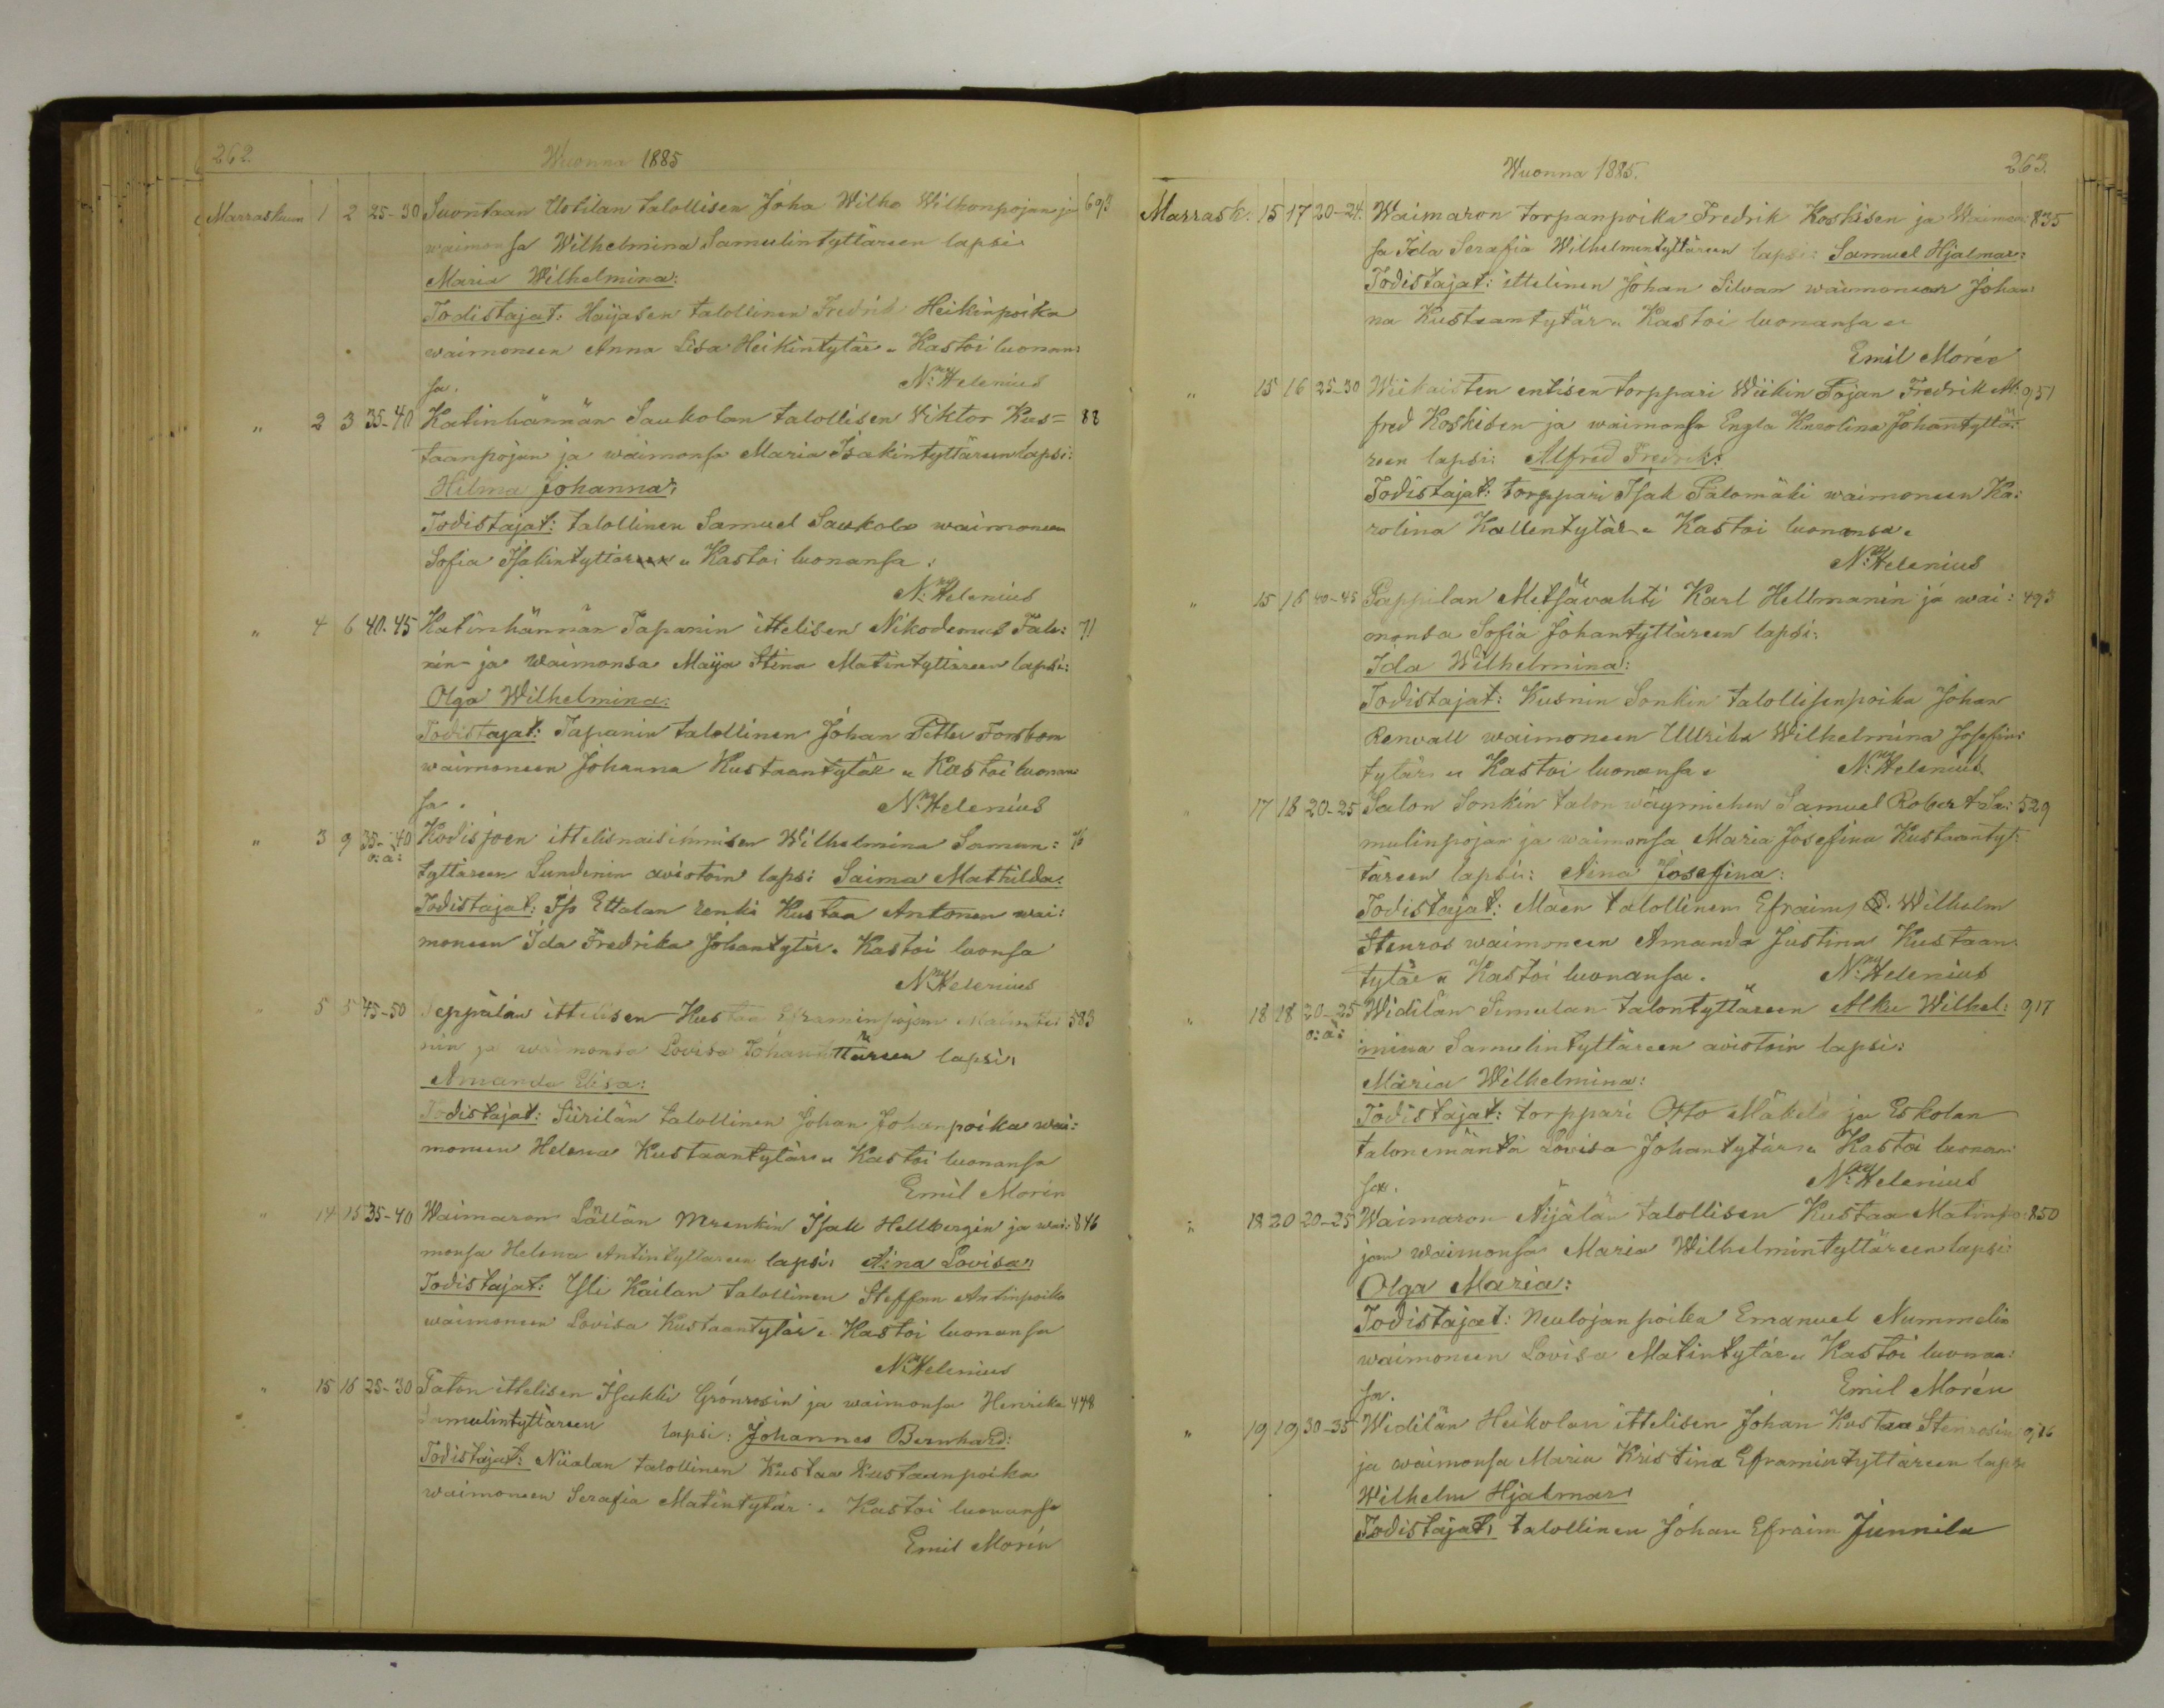 262.
Wuonna 1885
Marraskuun 1 2 25-30 Suontaan Uotilan talollisen Joha Wilho Wilhonpojan ja 693
waimonsa Wilhelmina Samulintyttäreen lapsi
Maria Wilhelmina:
Todistajat: Häyäsen talollinen Fredrik Heikinpoika
waimoneen Anna Lisa Heikintytär. Kastoi luonan:
sa. N: Helenius
" 2 3 35-40 Katinhännän Saukolan talollisen Wiktor Kus= 88
taanpojan ja waimonsa Maria Isakintyttäreen lapsi:
Hilma Johanna:
Todistajat: talollinen Samuel Saukola waimoneen
Sofia Isakintyttä " Kastoi luonansa.
N: Helenius
" 4 6 40-45 Katinhännän Tapanin ittelisen Nikodemus Fale: 71
nin ja waimonsa Maija Stina Matintyttäreen lapsi:
Olga Wilhelmina:
Todistajat: Tapanin talollinen Johan Petter Forsbom
waimoneen Johanna Kustaantytär " Kastoi luonan:
sa. N: Helenius
" 3 9 35-40 Kodisjoen ittelisnaisihmisen Wilhelmina Samun: 76
o: ä: tyttäreen Lundenin aviotoin lapsi Saima Mathilda:
Todistajat: Iso Ettalan renki Kustaa Antonen wai:
moneen Ida Fredrika Johantytär. Kastoi luonsa
N: Helenius
" 5 5 45-50 Seppälän ittelisen Kustaa Eframinpojan 583
nin ja waimonsa Lovisa Johantyttäreen lapsi:
Amanda Elisa:
Todistajat: Siirilän talollinen Johan Johanpoika wai:
moneen Helena Kustaantytär " Kastoi luonansa
Emil Morén
" 14 15 35-40 Waimaron Lällän Mrenkin Isak Hellbergin ja wai: 846
monsa Helena Antintyttäreen lapsi: Aina Lovisa:
Todistajat: Yli Kailan talollinen Steffan Antinpoika
waimoneen Lovisa Kustaantytär " Kastoi luonansa
N: Helenius
" 15 16 25-30 Taton ittelisen Isakki Grönrosin ja waimonsa Henrika 448
Samulintyttäreen lapsi: Johannes Bernhard:
Todistajat: Niialan talollinen Kustaa Kustaanpoika
waimoneen Serafia Matintytär " Kastoi luonansa
Emil Morén
Wuonna 1885.
263.
Marrask. 15 17 20-24. Waimaron torpanpoika Fredrik Koskisen ja Waimon: 835
sa Ida Serafia Wilhelmintyttäreen lapsi: Samuel Hjalmar:
Todistajat: ittelinen Johan Silvan waimoneen Johan:
na Kustaantytär " Kastoi luonansa "
Emil Morén
" 15 16 25-30 Wiikaisten entisen torppari Wiikin Pojan Fredrik Al: 951
fred Koskisen ja waimonsa Engla Karolina Johantyttä:
reen lapsi: Alfred Fredrik:
Todistajat: torppari Isak Palomäki waimoneen Ka:
rolina Kallentytär " Kastoi luonansa.
N: Helenius
" 15 16 40-45 Pappilan Metsävahti Karl Hellmanin ja wai: 493
monsa Sofia Johantyttäreen lapsi:
Ida Wilhelmina:
Todistajat: Kusnin Sonkin talollisenpoika Johan
Renvall waimoneen Ullrika Wilhelmina Josefin:
tytär " Kastoi luonansa " N: Helenius
" 17 18 20-25 Salon Sonkin talon wäymiehen Samuel Robert Sa: 529
mulinpojan ja waimonsa Maria Josefina Kustaantyt:
täreen lapsi: Aina Josefina:
Todistajat: Mäen talollinen Efraim Wilhelm
Stenros waimoneen Amanda Justina Kustaan:
tytär " Kastoi luonansa. N: Helenius
" 18 18 20-25 Widilän Simulan talontyttäreen Alku Wilhel: 917
o: ä: mina Samulintyttäreen aviotoin lapsi:
Maria Wilhelmina:
Todistajat: torppari Otto Mäkelä ja Eskolan
talonemäntä Lovisa Johantytär " Kastoi luonan:
sa. N: Helenius
" 18 20 20-25 Waimaron Äijälän talollisen Kustaa Matinpo: 850
jan waimonsa Maria Wilhelmintyttäreen lapsi:
Olga Maria:
Todistajat: Neulojanpoika Emanuel Nummelin
waimoneen Lovisa Matintytär " Kastoi luonan:
sa. Emil Morén
" 19 19 30-35 Widilän Heikolan ittelisen Johan Kustaa Stenrosin 916
ja waimonsa Maria Kristina Eframintyttäreen lapsi
Wilhelm Hjalmar:
Todistajat: talollinen Johan Efraim Junnila